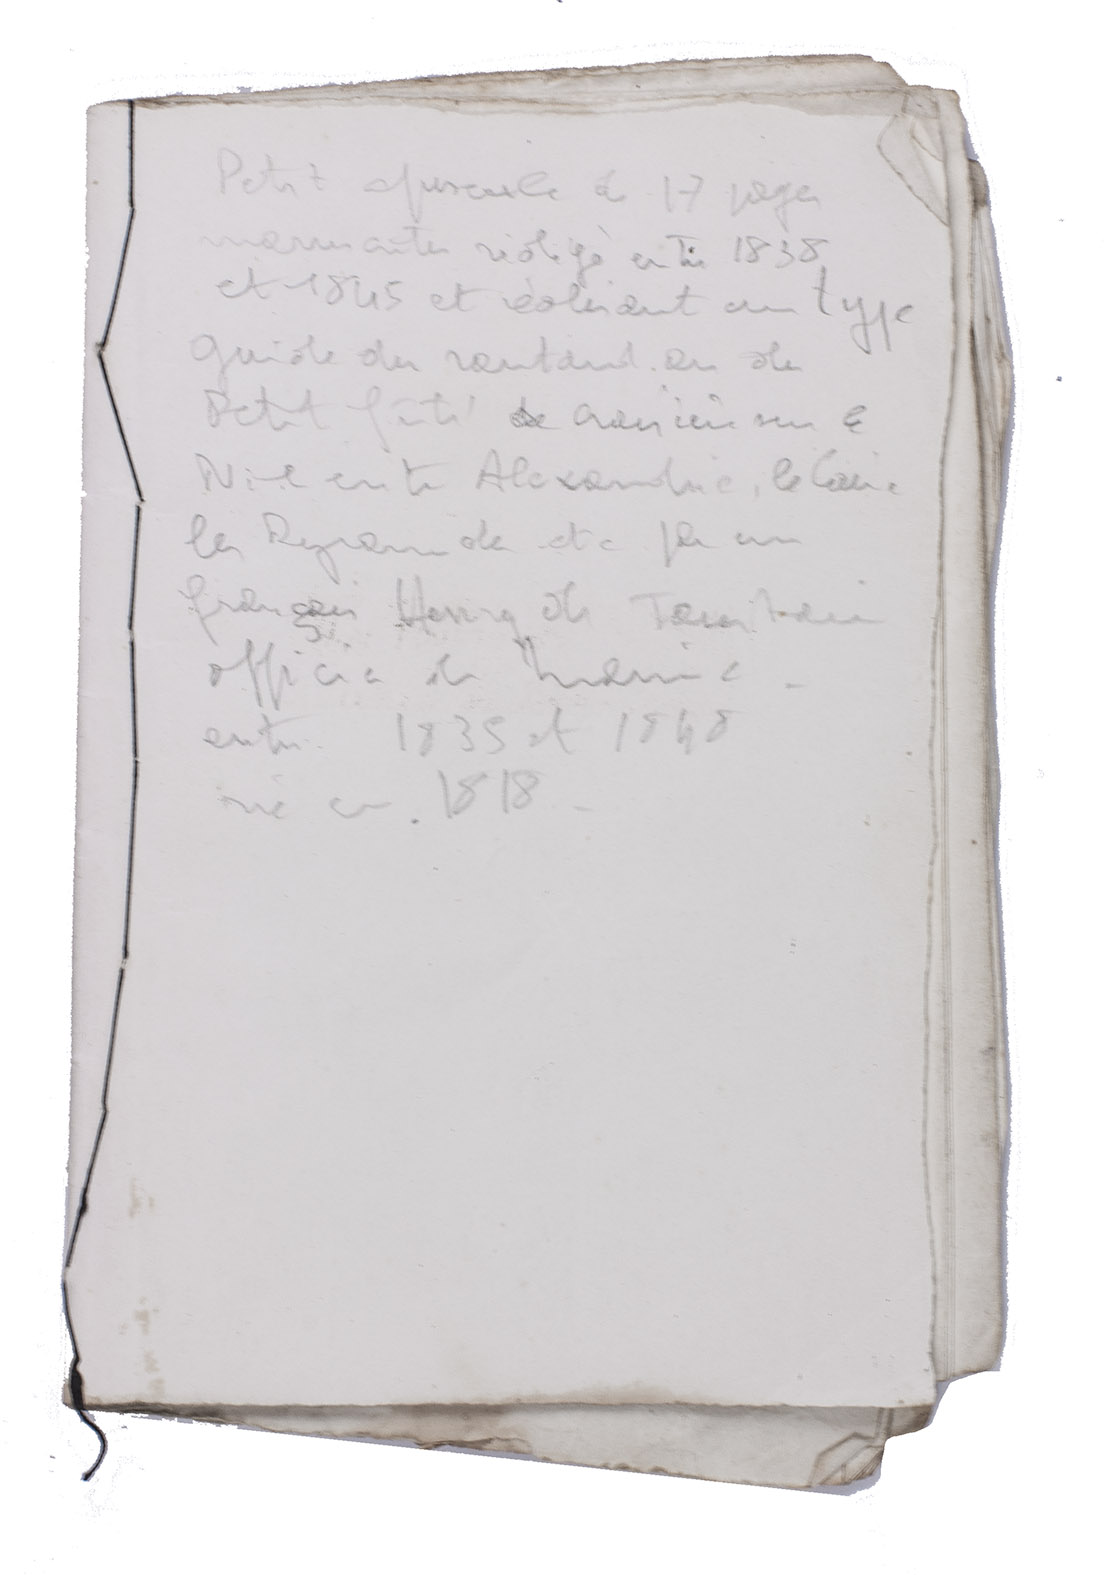 Petit opuscule de 17 pages
manuscrites rédigé entre 1838
et 1845 et réalisant un type
guide du routard ou de
Petit fûté de croisière sur le
Nil entre Alexandrie, le Caire
les Pyramides etc par un
français Henry de
officier de marine -
entre 1835 et 1848
né en . 1818 -